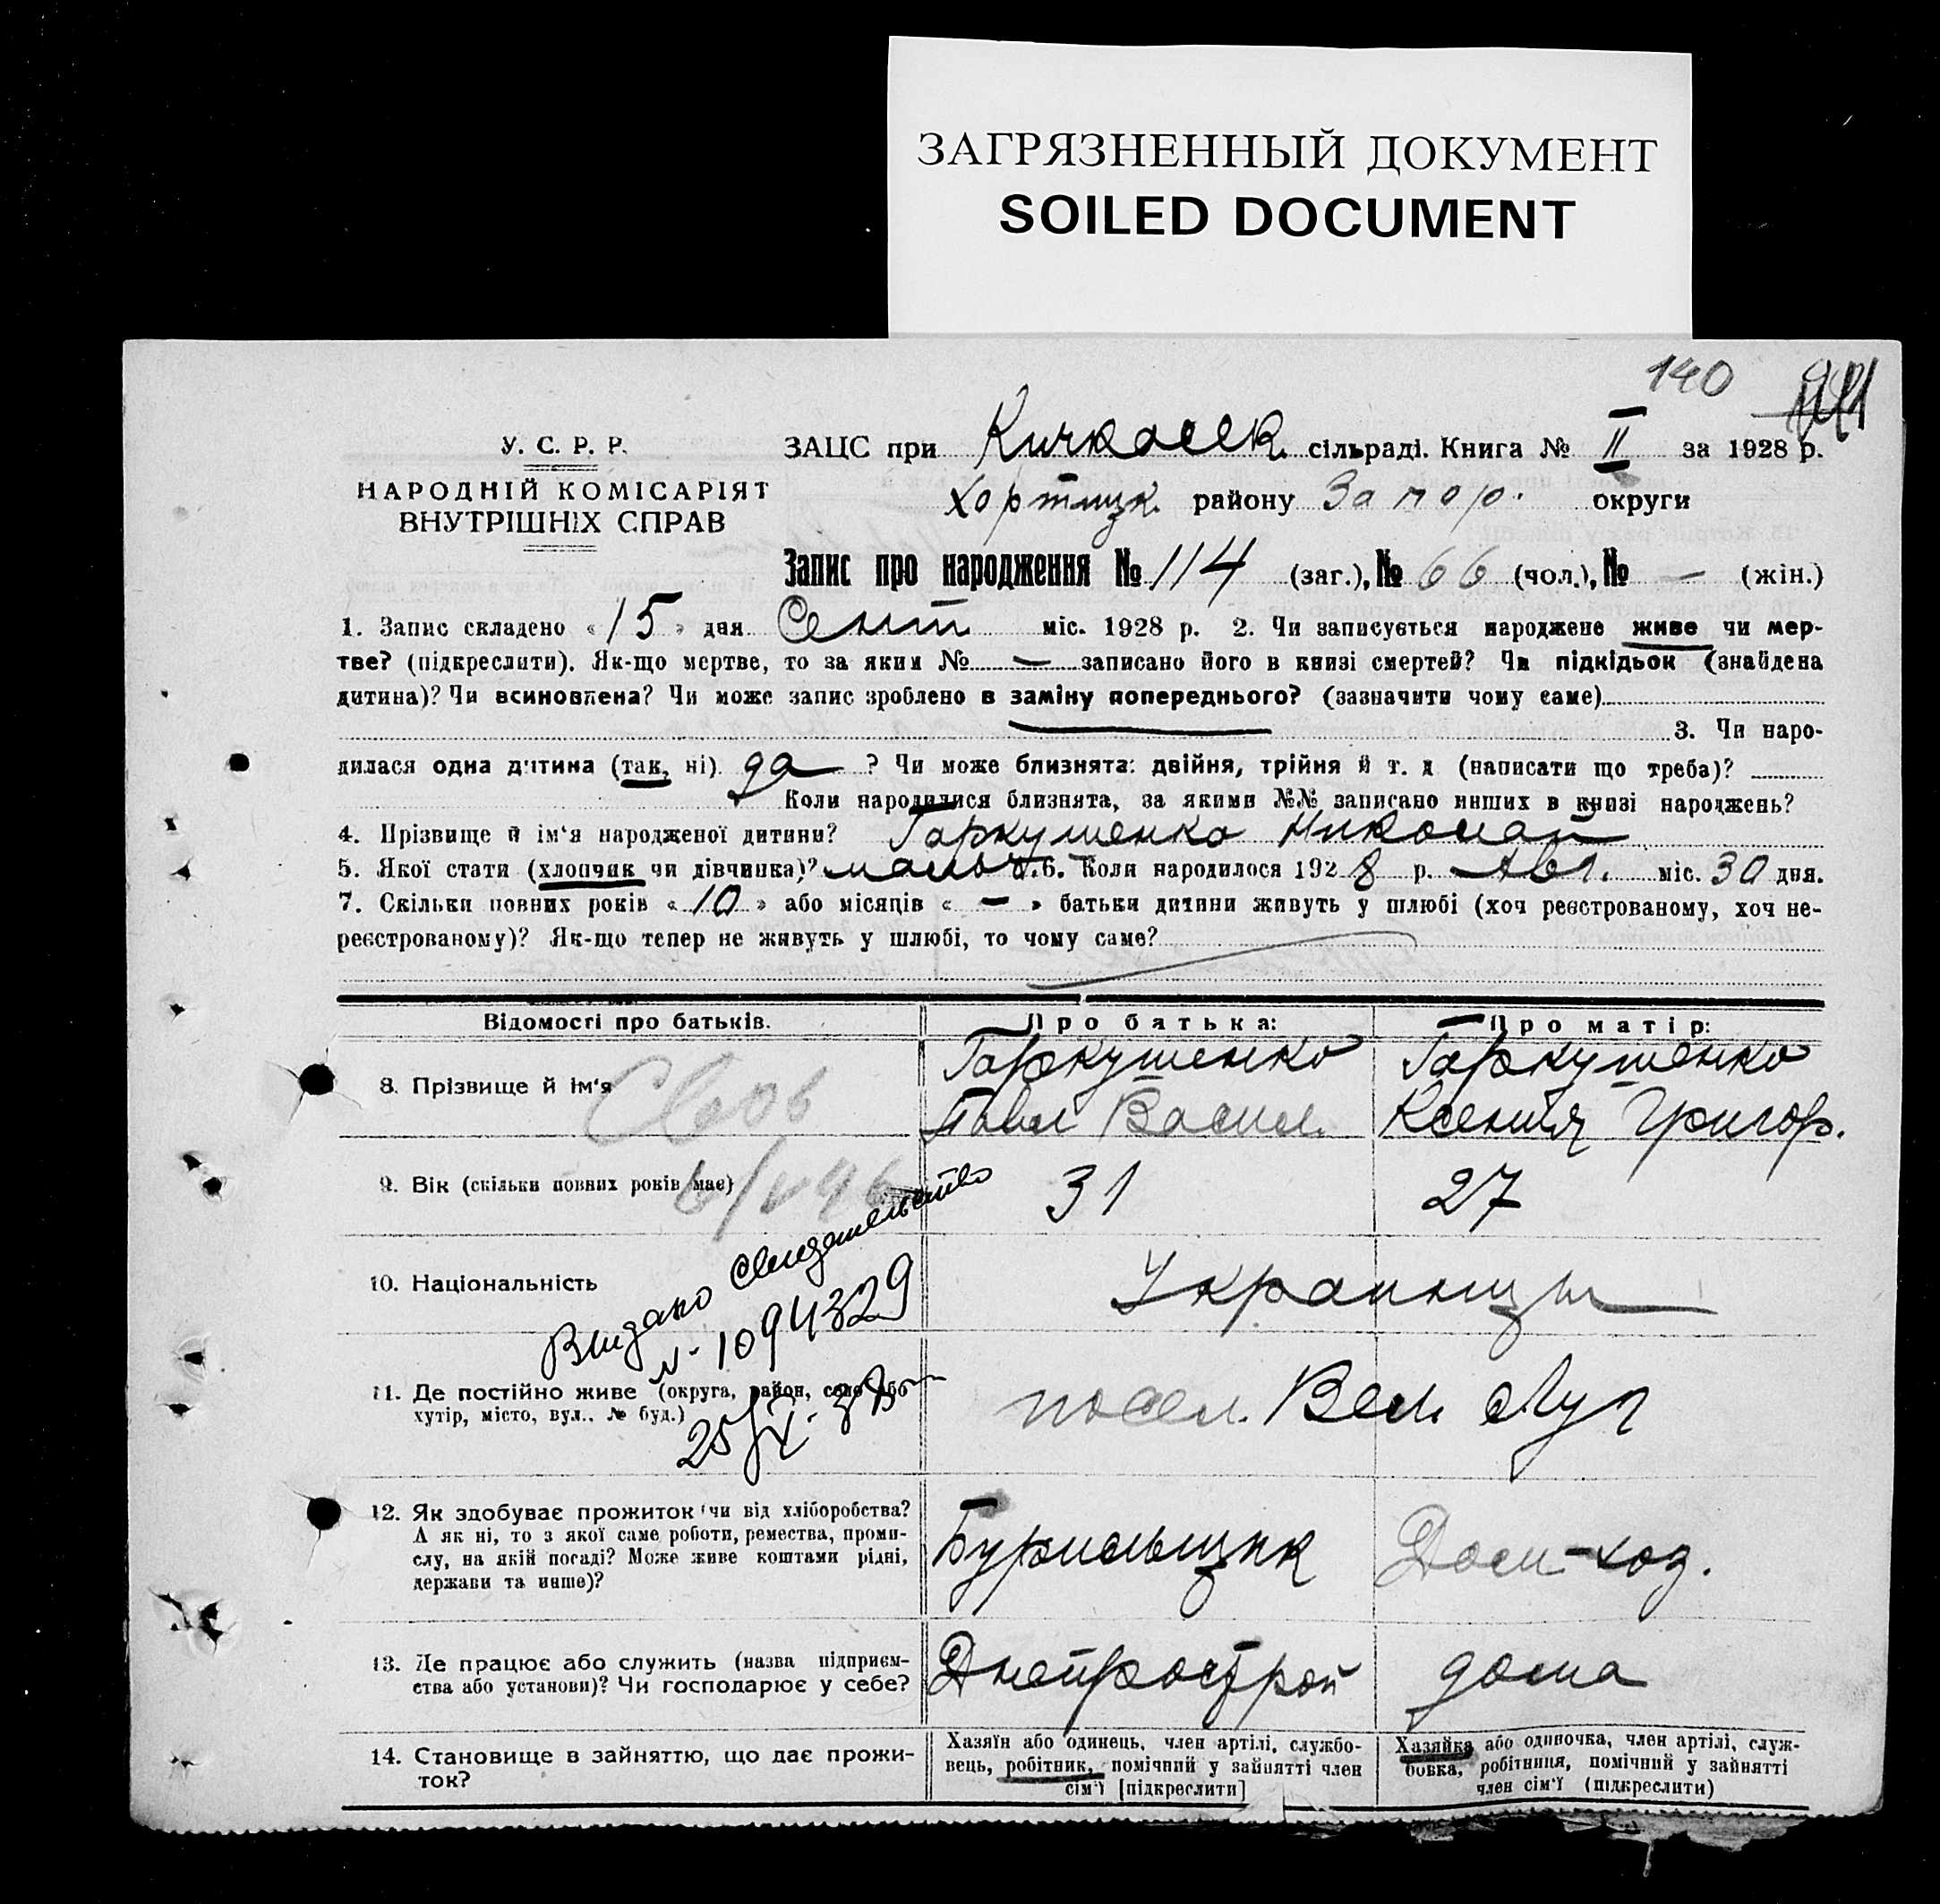 ЗАГРЯЗНЕННЫЙ ДОКУМЕНТ
SOILED DOCUMENT
140
У. С. Р. Р.
НАРОДНІЙ КОМІСАРІЯТ
ВНУТРІШНІХ СПРАВ
ЗАЦС при Кичкасск. сільраді. Книга № II за 1928 р.
Хортицк. району Запор. округи
Запис про народження № 114 (заг.), № 66 (чол.), № — (жін.)
1. Запис складено « 15 » дня Сент міс. 1928 р. 2. Чи записується народжене живе чи мер-
тве? (підкреслити). Як-що мертве, то за яким № — записано його в книзі смертей? Чи підкідьок (знайдена
дитина)? Чи всиновлена? Чи може запис зроблено в заміну попереднього? (зазначити чому саме)
3. Чи наро-
дилася одна дитина (так, ні) да ? Чи може близнята: двійня, трійня й т. д (написати що треба)?
Коли народилися близнята, за якими №№ записано инших в книзі народжень?
4. Прізвище й ім'я народженої дитини? Гаркушенко Николай
5. Якої стати (хлопчик чи дівчинка)? мальч. 6. Коли народилося 1928 р. Авг. міс. 30 дня.
7. Скільки повних років « 10 » або місяців « — » батьки дитини живуть у шлюбі (хоч реєстрованому, хоч не-
реєстрованому)? Як-що тепер не живуть у шлюбі, то чому саме?
Відомості про батьків. Про батька: Про матір:
8. Прізвище й ім'я Гаркушенко Павел Васил. Гаркушенко Ксения Григор.
9. Вік (скільки повних років має) 31 27
Выдано свидетельство
№ 1094329
10. Національність Украинцы
11. Де постійно живе (округа, район, село або
хутір, місто, вул., № буд.) посел. Вел. Луг
12. Як здобуває прожиток чи від хліборобства?
А як ні, то з якої саме роботи, ремества, проми-
слу, на якій посаді? Може живе коштами рідні,
держави та инше)? Бурильщик Дом-хоз.
13. Де працює або служить (назва підприєм-
ства або установи)? Чи господарює у себе? Днепрострой дома
14. Становище в зайняттю, що дає прожи-
ток?
Хазяїн або одинець, член артілі, службо-
вець, робітник, помічний у зайнятті член
сім'ї [підкреслити]
Хазяйка або одиночка, член артілі, служ-
бовка, робітниця, помічний у зайнятті
член сім'ї (підкреслити)